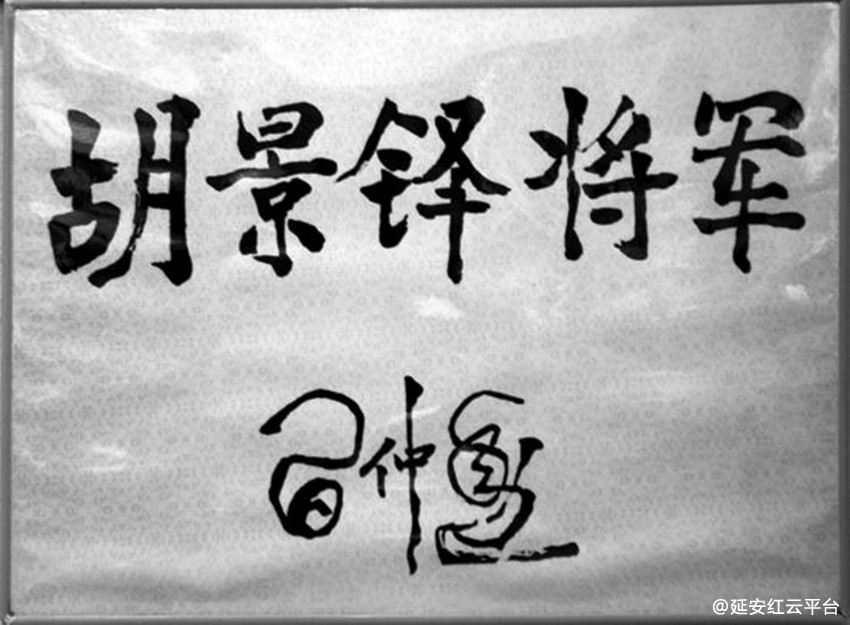 胡景铎将军
习仲勋
@延安红云平台